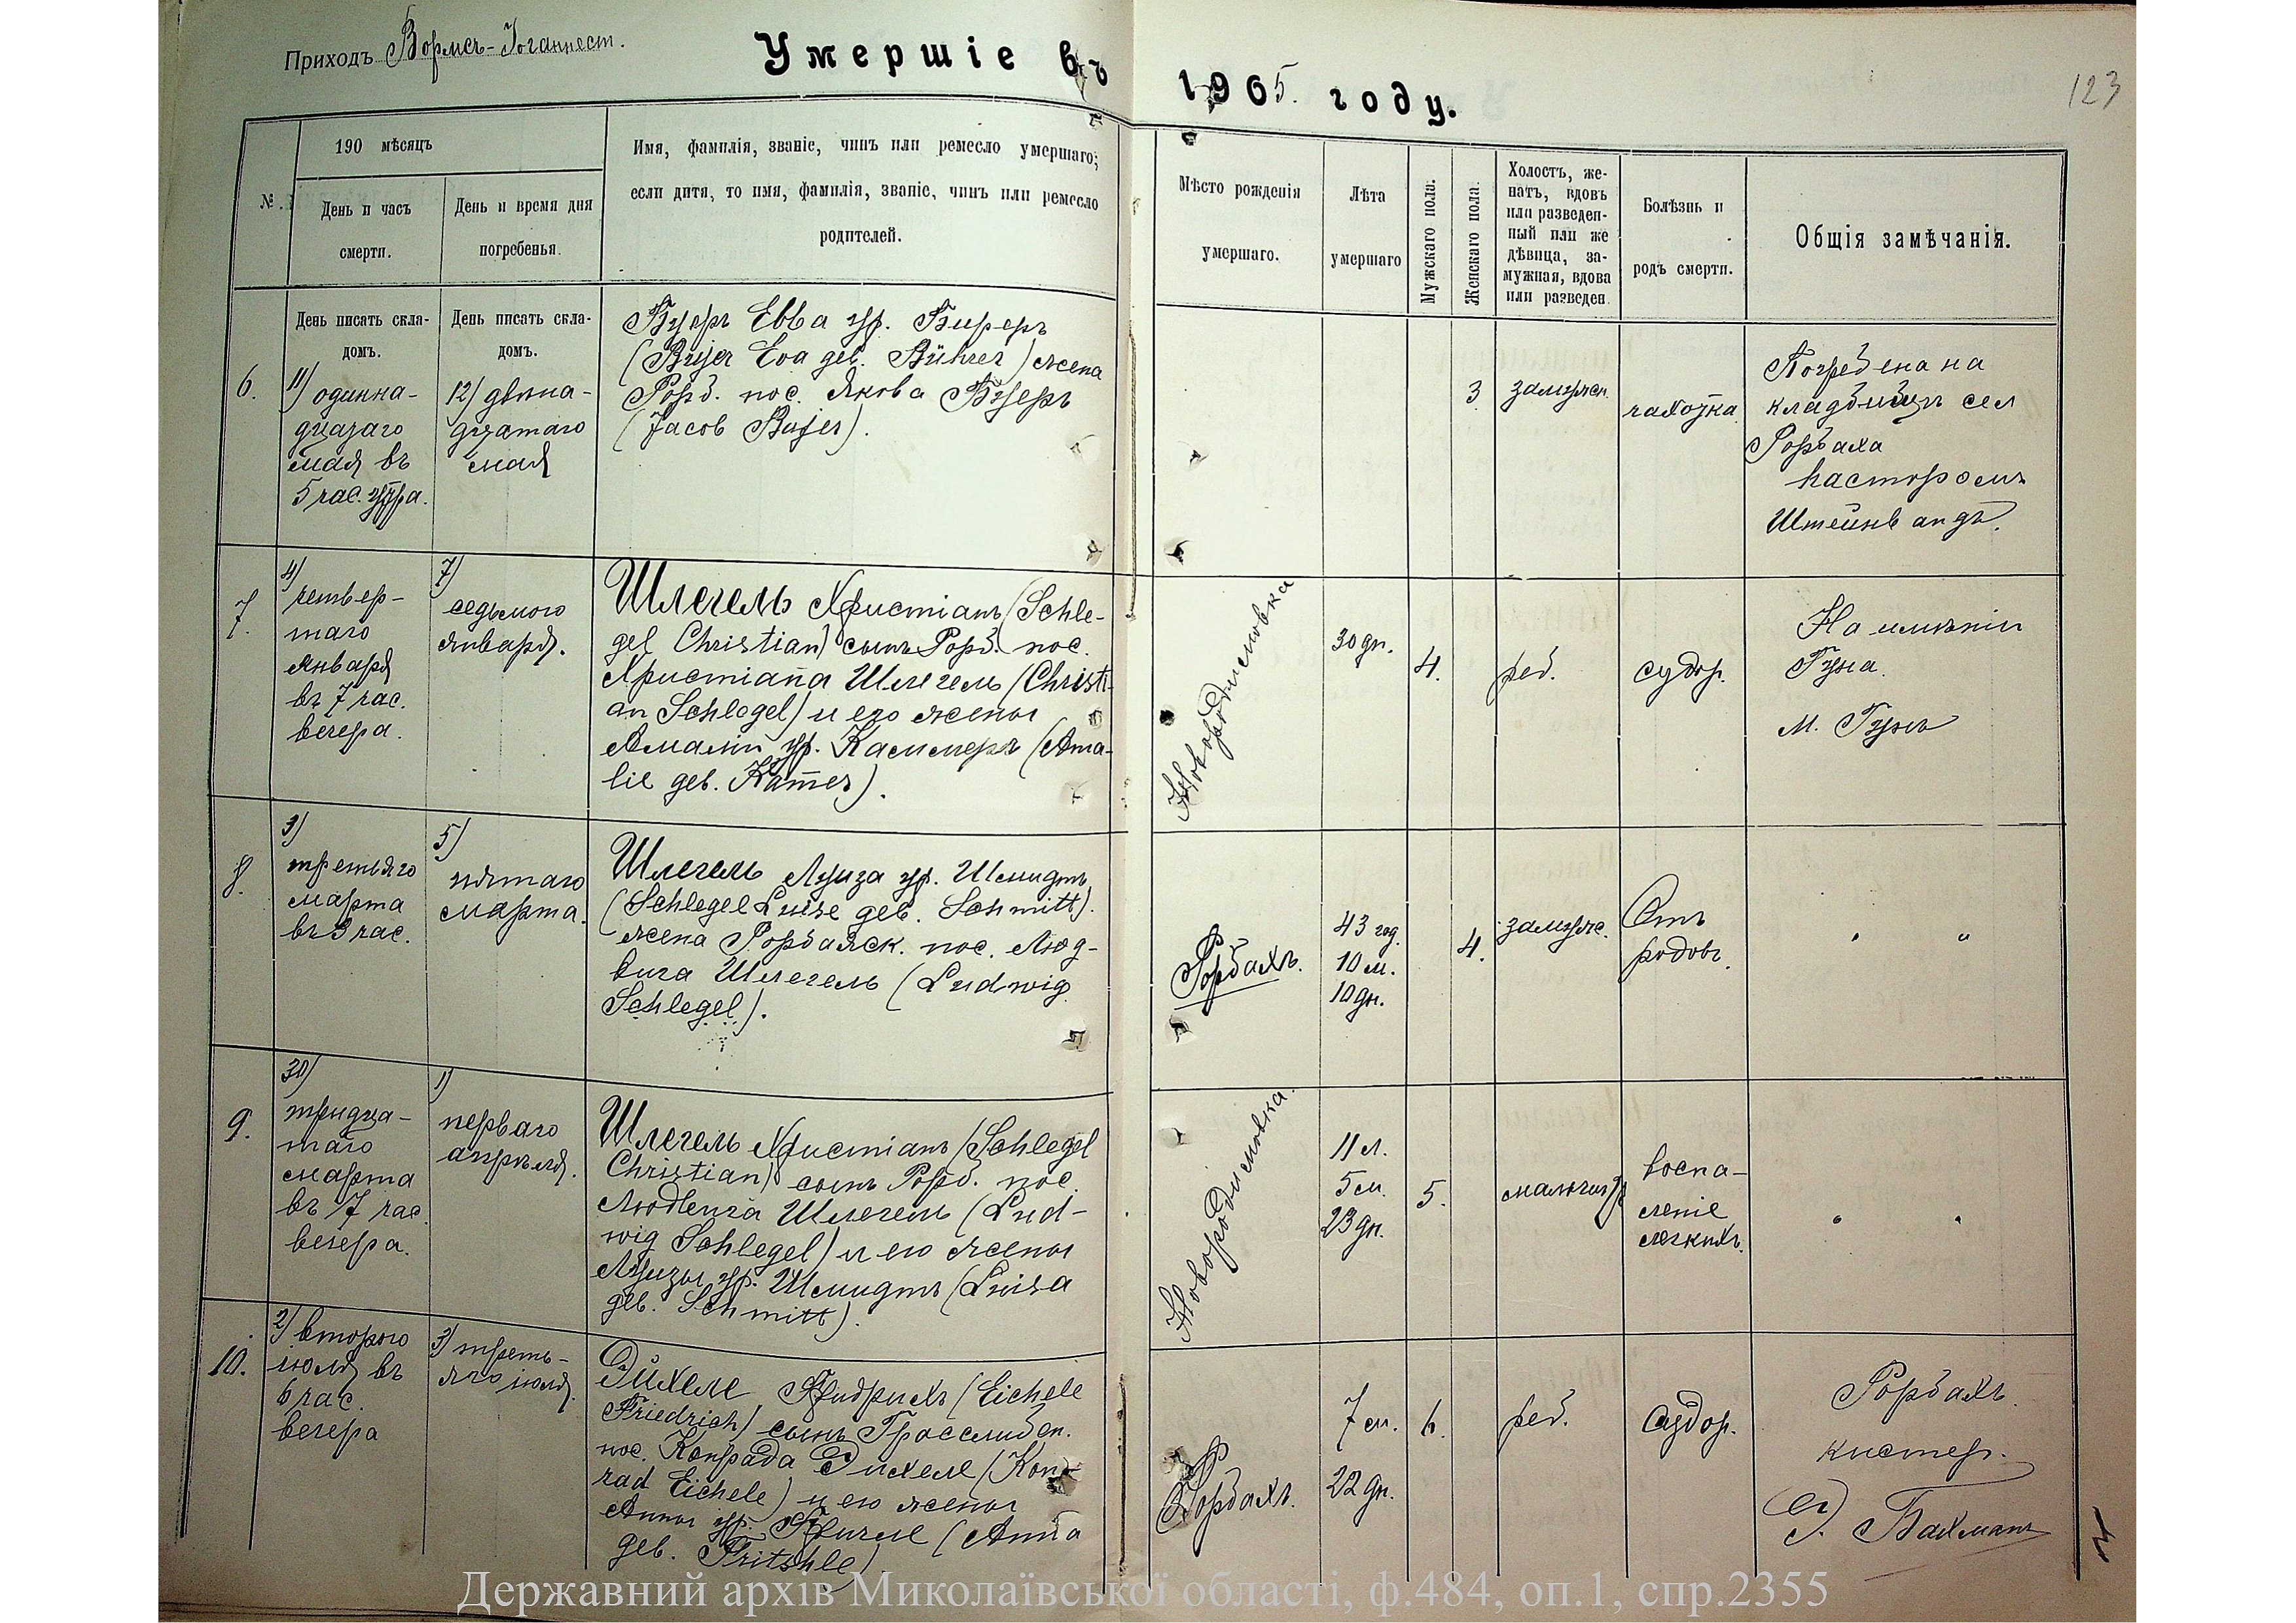 Приходъ Вормсъ-Іоганнест.
Умершіе въ 1905. году.
123
№.
190 мѣсяцъ
День и часъ
смерти.
День и время дня
погребенья.
Имя, фамилія, званіе, чинъ или ремесло умершаго;
если дитя, то имя, фамилія, званіе, чинъ или ремесло
родителей.
Мѣсто рожденія
умершаго.
Лѣта
умершаго
Мужскаго пола.
Женскаго пола.
Холостъ, же-
натъ, вдовъ
или разведен-
ный или же
дѣвица, за-
мужная, вдова
или разведен.
Болѣзнь и
родъ смерти.
Общія замѣчанія.
День писать скла-
домъ.
День писать скла-
домъ.
6.
11) одинна-
дцатаго
мая въ
5 час. утра.
12) двѣна-
дцатаго
мая
Буеръ Евва ур. Биреръ
(Bujer Eva geb. Bührer) жена
Рорб. пос. Якова Буеръ
(Jacob Bujer).
3
замужн.
чахотка
Погребена на
кладбищѣ сел
Рорбаха
пасторомъ
Штейнвандъ.
7.
4)
четвер-
таго
января
въ 7 час.
вечера.
7)
седьмого
января.
Шлегель Христіанъ (Schle-
gel Christian) сынъ Рорб. пос.
Христіана Шлегель (Christi-
an Schlegel) и его жены
Амаліи ур. Каммеръ (Ama-
lie geb. Kam̅er).
Новородисловка
30 дн.
4.
реб.
судор.
На имѣніи
Гуна.
М. Гунъ
8.
3)
третьяго
марта
въ 3 час.
5)
пятаго
марта.
Шлегель Луиза ур. Шмидтъ
(Schlegel Luise geb. Schmitt).
жена Рорбахск. пос. Люд-
вига Шлегель (Ludwig
Schlegel).
Рорбахъ.
43 год.
10 м.
10 дн.
4.
замужс.
Отъ
родовъ.
" "
9.
30)
тридца-
таго
марта
въ 7 час.
вечера.
1)
перваго
апрѣля.
Шлегель Христіанъ (Schlegel
Christian) сынъ Рорб. пос.
Людвига Шлегель (Lud-
wig Schlegel) и его жены
Луизы ур. Шмидтъ (Luisa
geb. Schmitt).
Новородисловка.
11 л.
5 м.
23 дн.
5.
мальчикъ
воспа-
леніе
легкихъ.
" "
10.
2) второго
іюля въ
6 час.
вечера
3) треть-
яго іюля.
Эйхеле Фридрихъ (Eichele
Friedrich) сынъ Гросслибен.
пос. Конрада Эйхеле (Kon-
rad Eichele) и его жены
Анны ур. Фричле (Anna
geb. Fritshle)
Рорбахъ.
7 м.
22 дн.
6.
реб.
судор.
Рорбахъ.
кистер.
Бахманъ
Державний архів Миколаївської області, ф.484, оп.1, спр.2355